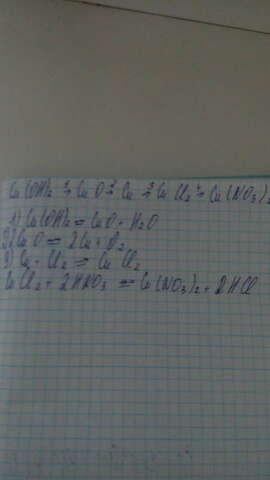 Cu(OH)₂ →¹ CuO →² Cu →³ CuCl₂ →⁴ Cu(NO₃)₂
1) Cu(OH)₂ = CuO + H₂O
2) 2CuO = 2Cu + O₂
3) Cu + Cl₂ = CuCl₂
CuCl₂ + 2HNO₃ = Cu(NO₃)₂ + 2HCl